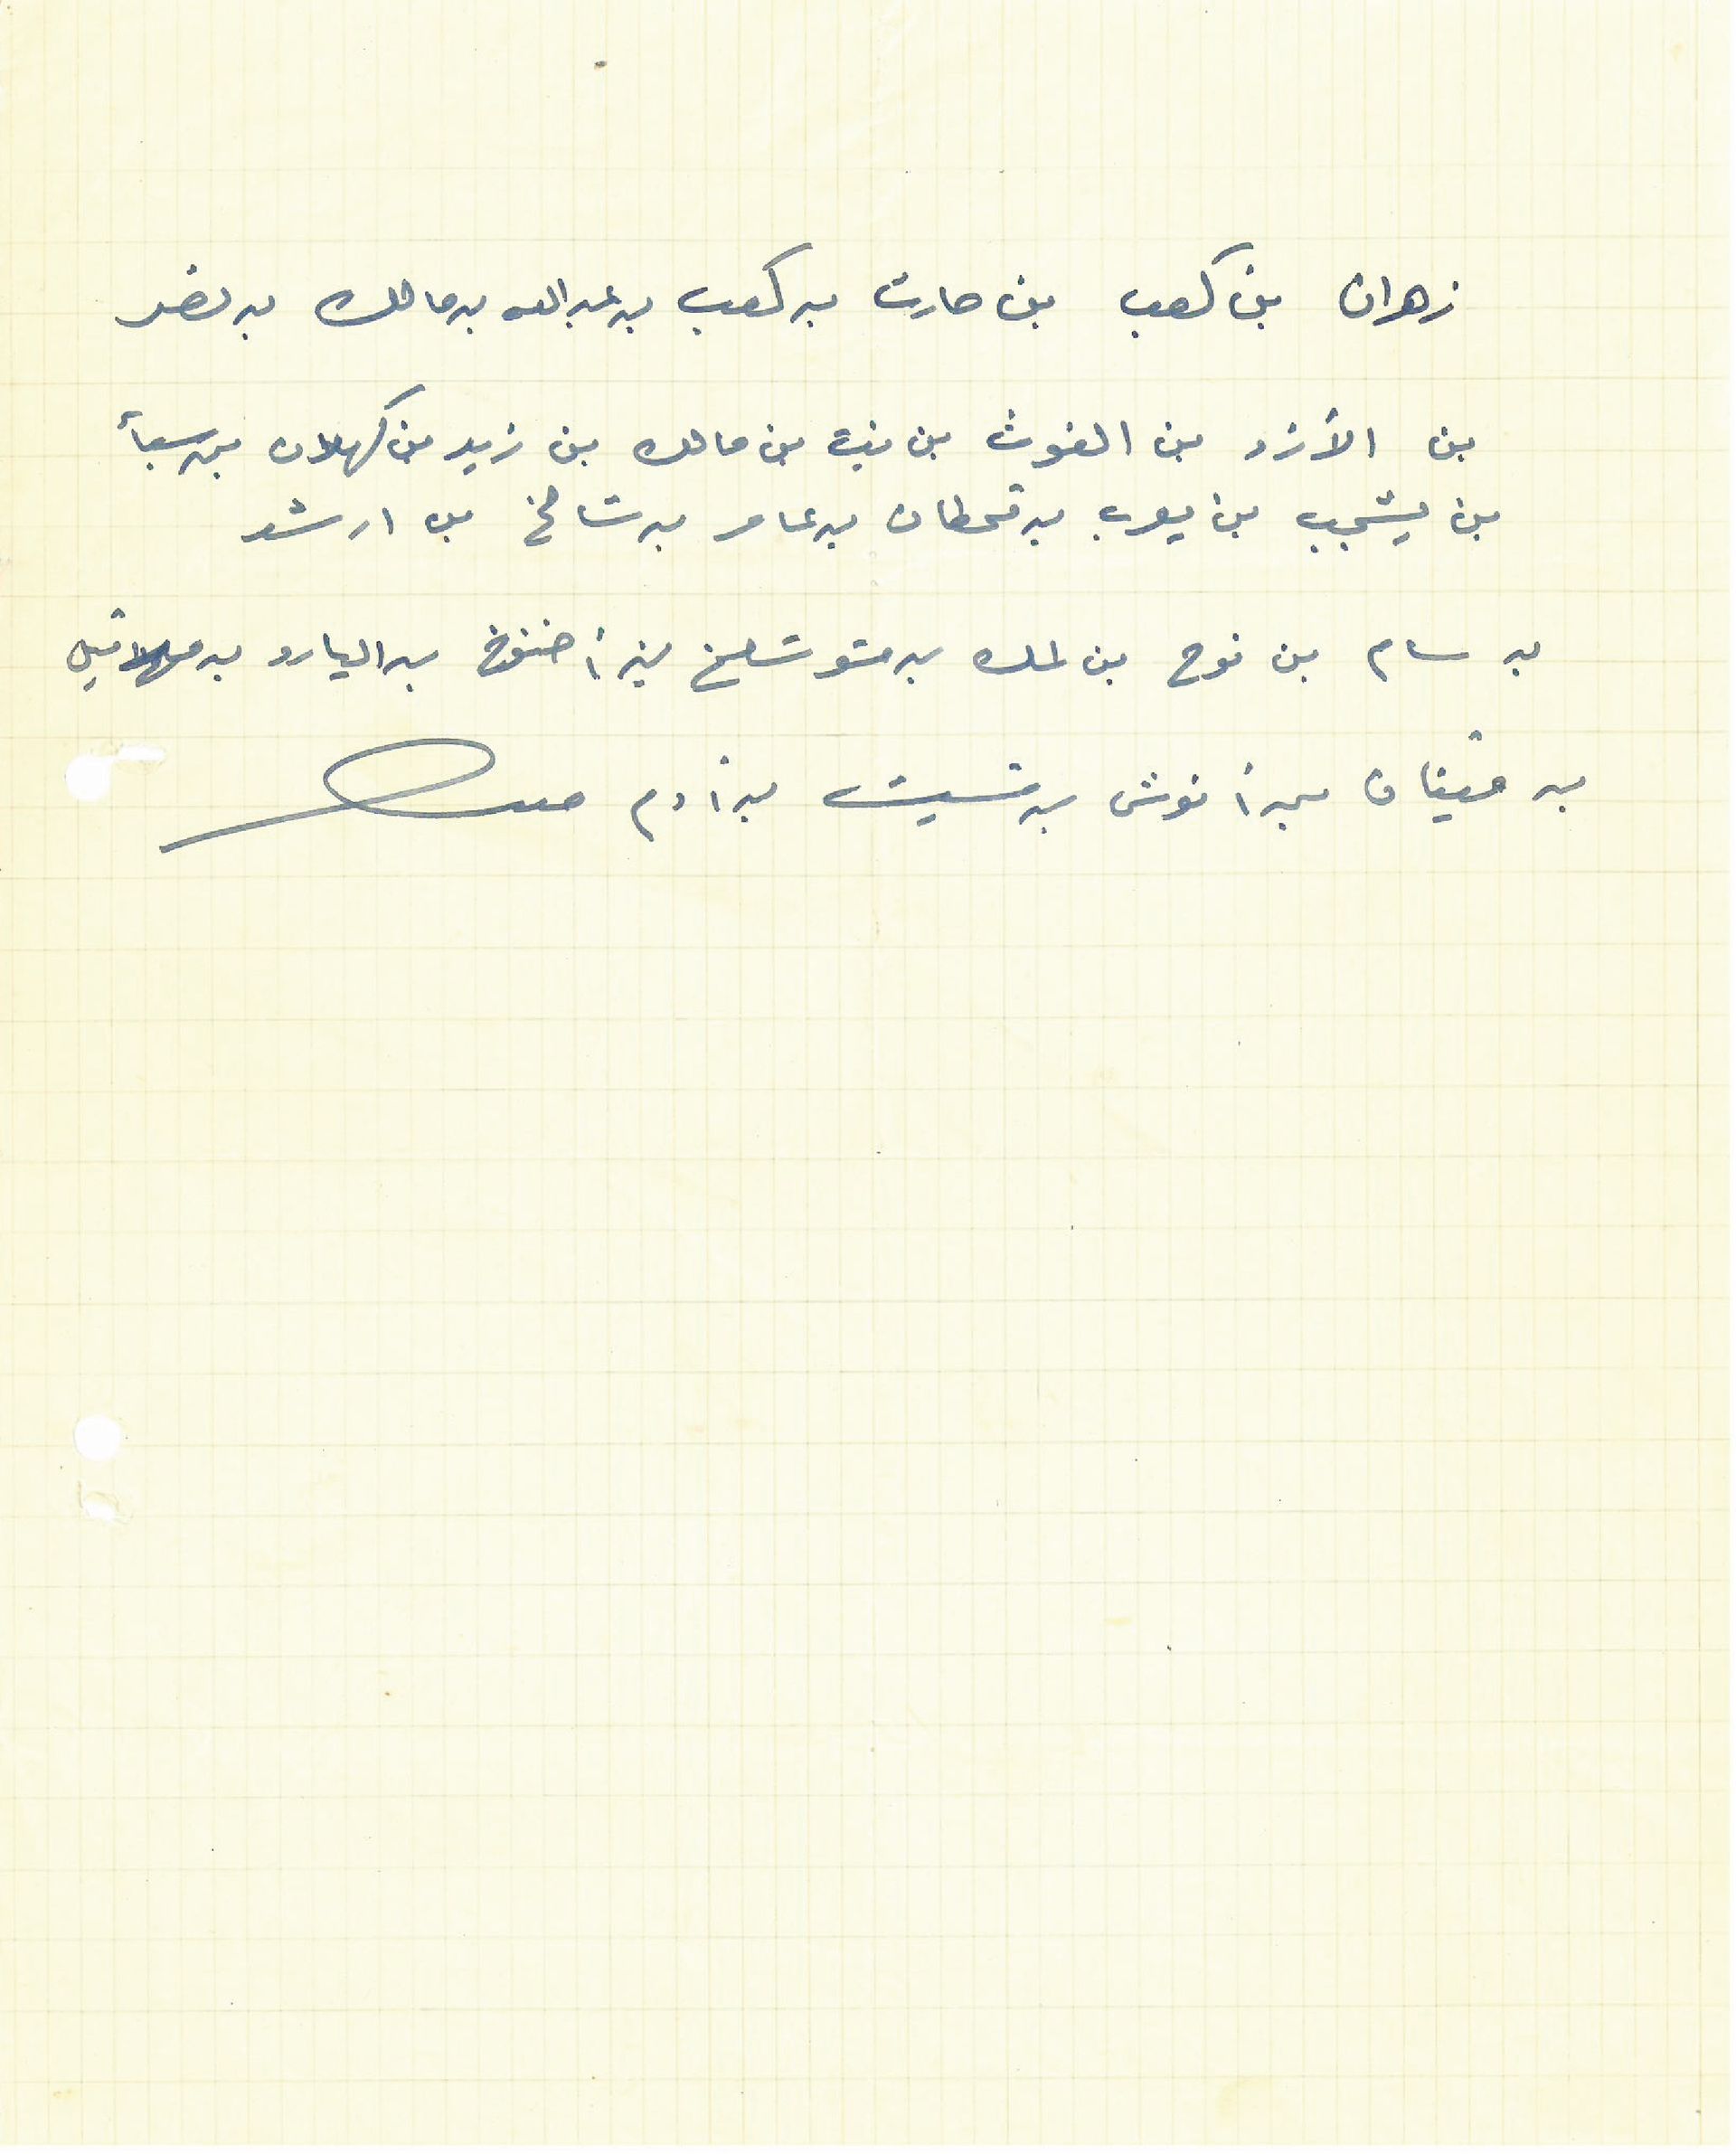 زهران بن كعب بن حارث بن كعب بن عبدالله بن مالك بن نصر
بن الأزد بن الغوث بن نبت بن مالك بن زيد بن كهلان بن سبأ
بن يشجب بن يعرب بن قحطان بن عامر بن شالخ بن ارشد
بن سام بن نوح بن لمك بن متوشلخ بن أخنوخ بن اليارد بن مهلائيل
بن قينان بن أنوش بن شيث بن آدم